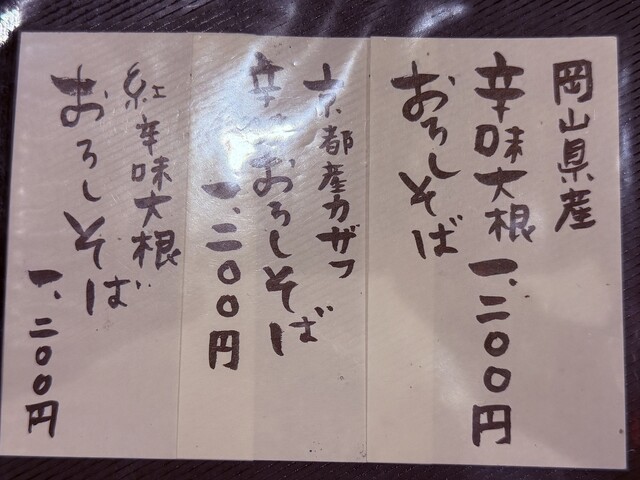 岡山県産
辛味大根
おろしそば
一、二〇〇円
京都産カザフ
辛 おろしそば
一、二〇〇円
紅辛味大根
おろしそば
一、二〇〇円